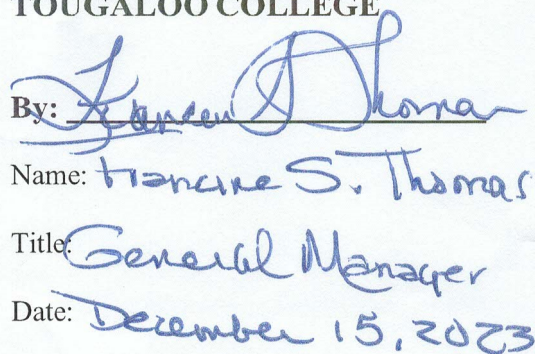 TOUGALOO COLLEGE
By: Francine S Thomas
Name: Francine S. Thomas
Title: General Manager
Date: December 15, 2023